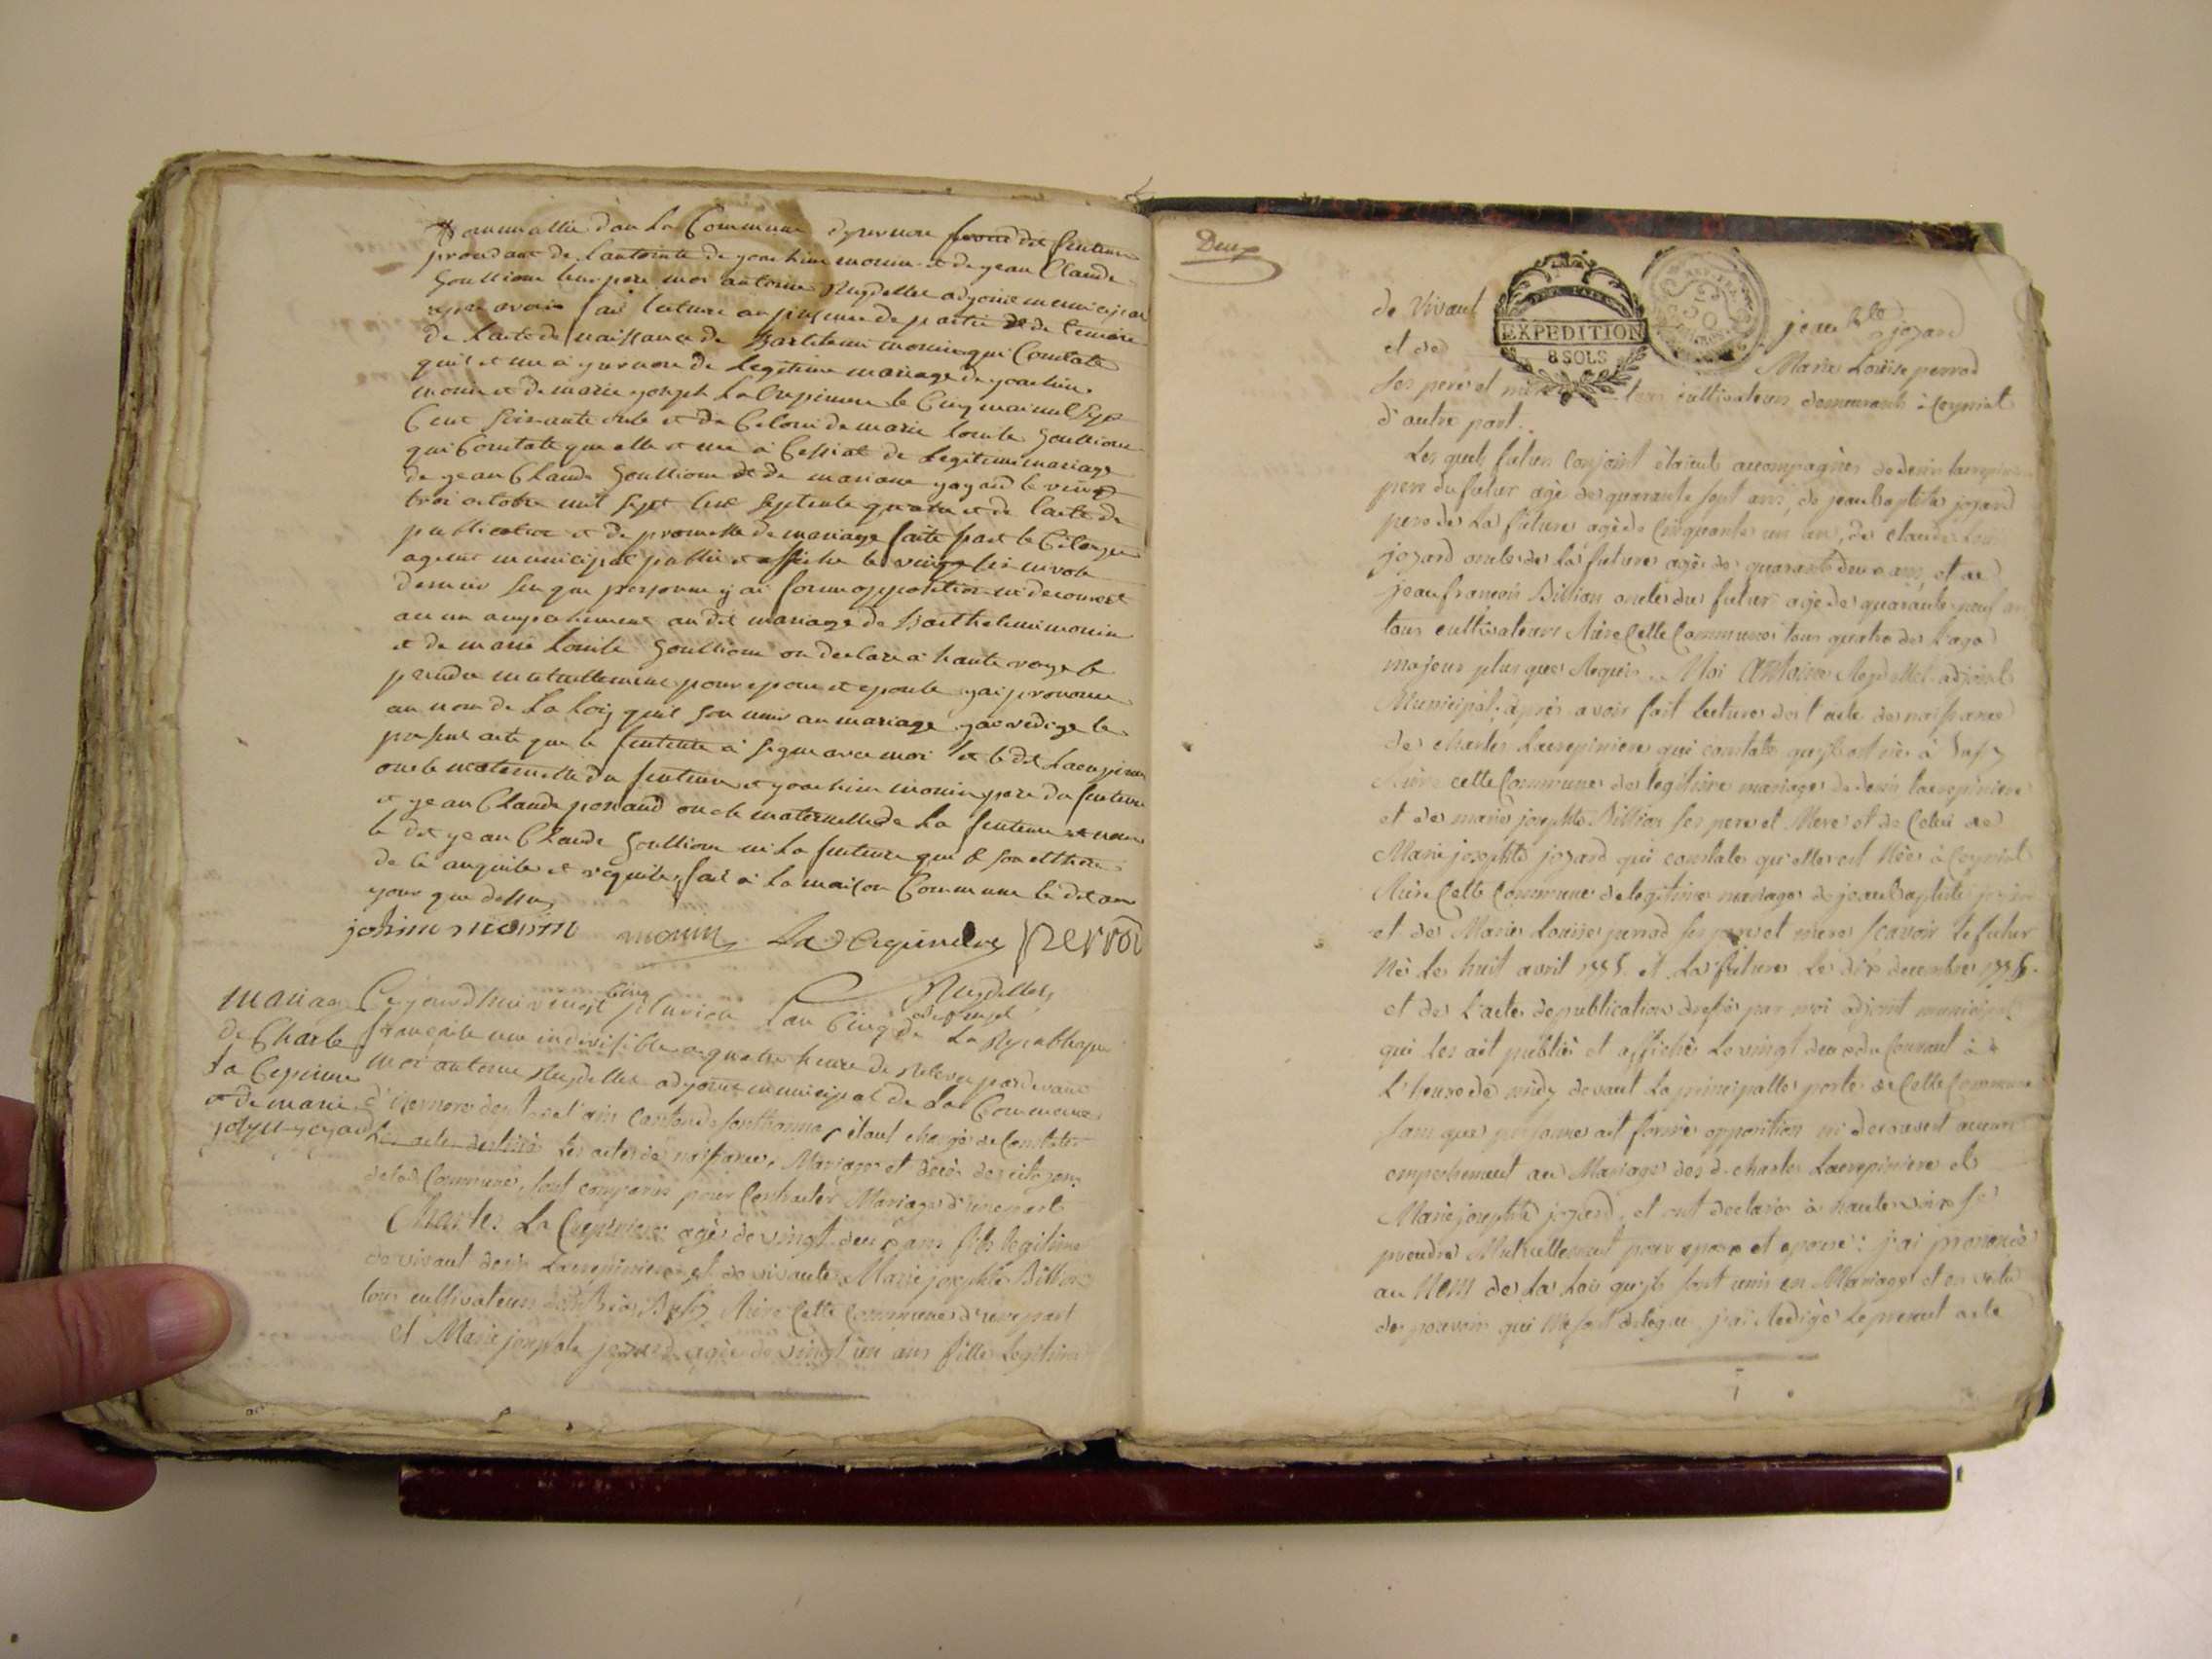 dan La Commune
de Lantointe de joachim monin et de jean Claude
Goullion leur pere moi antoine Reydellet adjoint municipal
apre avoir fai lecture an presence de partie de
de Lacte de naissance de Bartelemi monin qui Constate
quil et ne a de Legitime mariage de joachim
monin et de marie joseph La Crepiniere le Cinq mai mil Sept
Cent Soixante et de Celoui de marie Louise Goullion
qui Constate que elle et née a Cessiat de Legitime mariage
de jean Claude Goullion et de mariane le vingt
troi octobre mil Sept Cent Septente quatre et de lacte de
publication et de promesse de mariage faite par le Citoyen
agent municipal publie et affiche le vingt
dernier sen que personne y ai forme opposition ni decouvert
au un anpechement au dit mariage de Barthelemi monin
et de marie Louise Goullion on declare a haute voye se
prendre mutuellement pour epou et epouse jai prononce
au nom de La Loij quil son unir an mariage jac redige le
present acte que le a signe avec moi et le dit Lacrepiniere
oncle maternelle du et joachim monin pere du
et jean Claude oncle maternelle de La
le dit jean Claude Goullion ni La qui son
de se anquite et requite, fai a La maison Commune le dit an
jour que dessus
johim monin monin La Crepiniere Perrod
Reydellet
adjoint
mariage Ce jourdhui vingt Cinq pluviose Lan Cinq de La Republique
de Charle française une indivisible a quatre heure de Relevee par devant
La Crepiniere moi antoine Reydellet adjoint municipal de La Commune
et de marie d'izernore dep. de l'ain Canton de Sonthonna, étant chargé de Constater
joseph joyard Les actes de naissances, Mariages et décès des citoyens
de lad. Commune, sont comparus pour Contracter Mariage d'une part
Charles La Crepiniere agé de vingt deux ans fils legitime
de vivant denis Lacrepiniere et de vivante Marie josephte Billion
tous cultivateurs Rière Cette Commune d'une part
et Marie josephte jozard agée de vingt un ans fille Legitime
Deux
EXPEDITION
8 SOLS
de Vivant jean Bte jozard
et de Marie Louïse perrod
Ses pere et mere tous cultivateurs demeurants à Ceyssiat
d'autre part.
Les quels futurs Conjoint étaient accompagnés de denis lacrepiniere
pere du futur agé de quarante sept ans, de jean baptiste jozard
pere de La future agé de Cinquante un an, de claude
jozard oncle de La future agé de quarante deux ans, et de
jean françois Billion oncle du futur agé de quarante neuf an
tous cultivateurs Rière Cette Commune tous quatre de l'age
majeur plus que Requis. Moi Antoine Reydellet adjoint
Municipal, après avoir fait lecture de l'acte de naissance
de charles Lacrepiniere qui constate qu'il est né à
Rière cette Commune de legitime mariage de denis lacrepiniere
et de marie josephte Billion ses pere et Mere et de Celui de
Marie josephte jozard qui constate qu'elle est Née à Ceyssiat
Rière Cette Commune de legitime mariage de jean baptiste jozard
et de Marie Louise perrod ses pere et mere scavoir Le futur
Né Le huit avril et La future Le dix decembre
et de L'acte de publication dressé par moi adjoint municipal
qui les ait publié et affiché Le vingt deux du Courant à
L'heure de midy devant La principalle porte de Cette Commune
sans que personne ait formé opposition ni decouvert aucun
empechement au Mariage desd. charles Lacrepiniere et
Marie josephte jozard, et ont declaré à haute voix se
prendre Mutuellement pour epoux et epouse: j'ai prononcé
au Nom de La Loi qu'ils sont unis en Mariage et en vertu
de pouvoir qui me sont delegue j'ai Redigé Le present acte